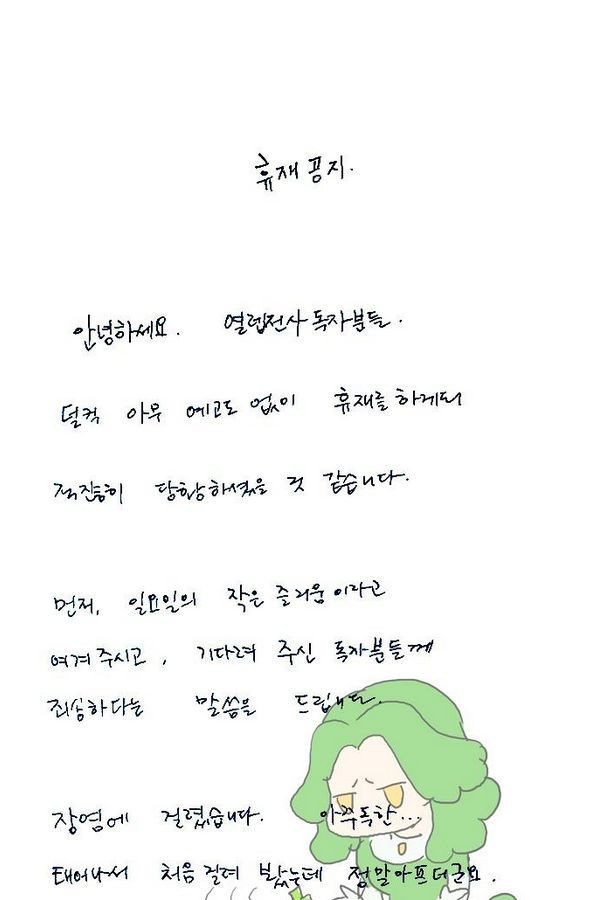 휴재 공지.
안녕하세요. 열렙전사 독자분들.
덜컥 아무 예고도 없이 휴재를 하게되
적잖히 당황하셨을 것 같습니다.
먼저, 일요일의 작은 즐거움이라고
여겨주시고, 기다려 주신 독자분들께
죄송하다는 말씀을 드립니다.
장염에 걸렸습니다. 아주독한...
태어나서 처음 걸려 봤는데 정말아프더군요.